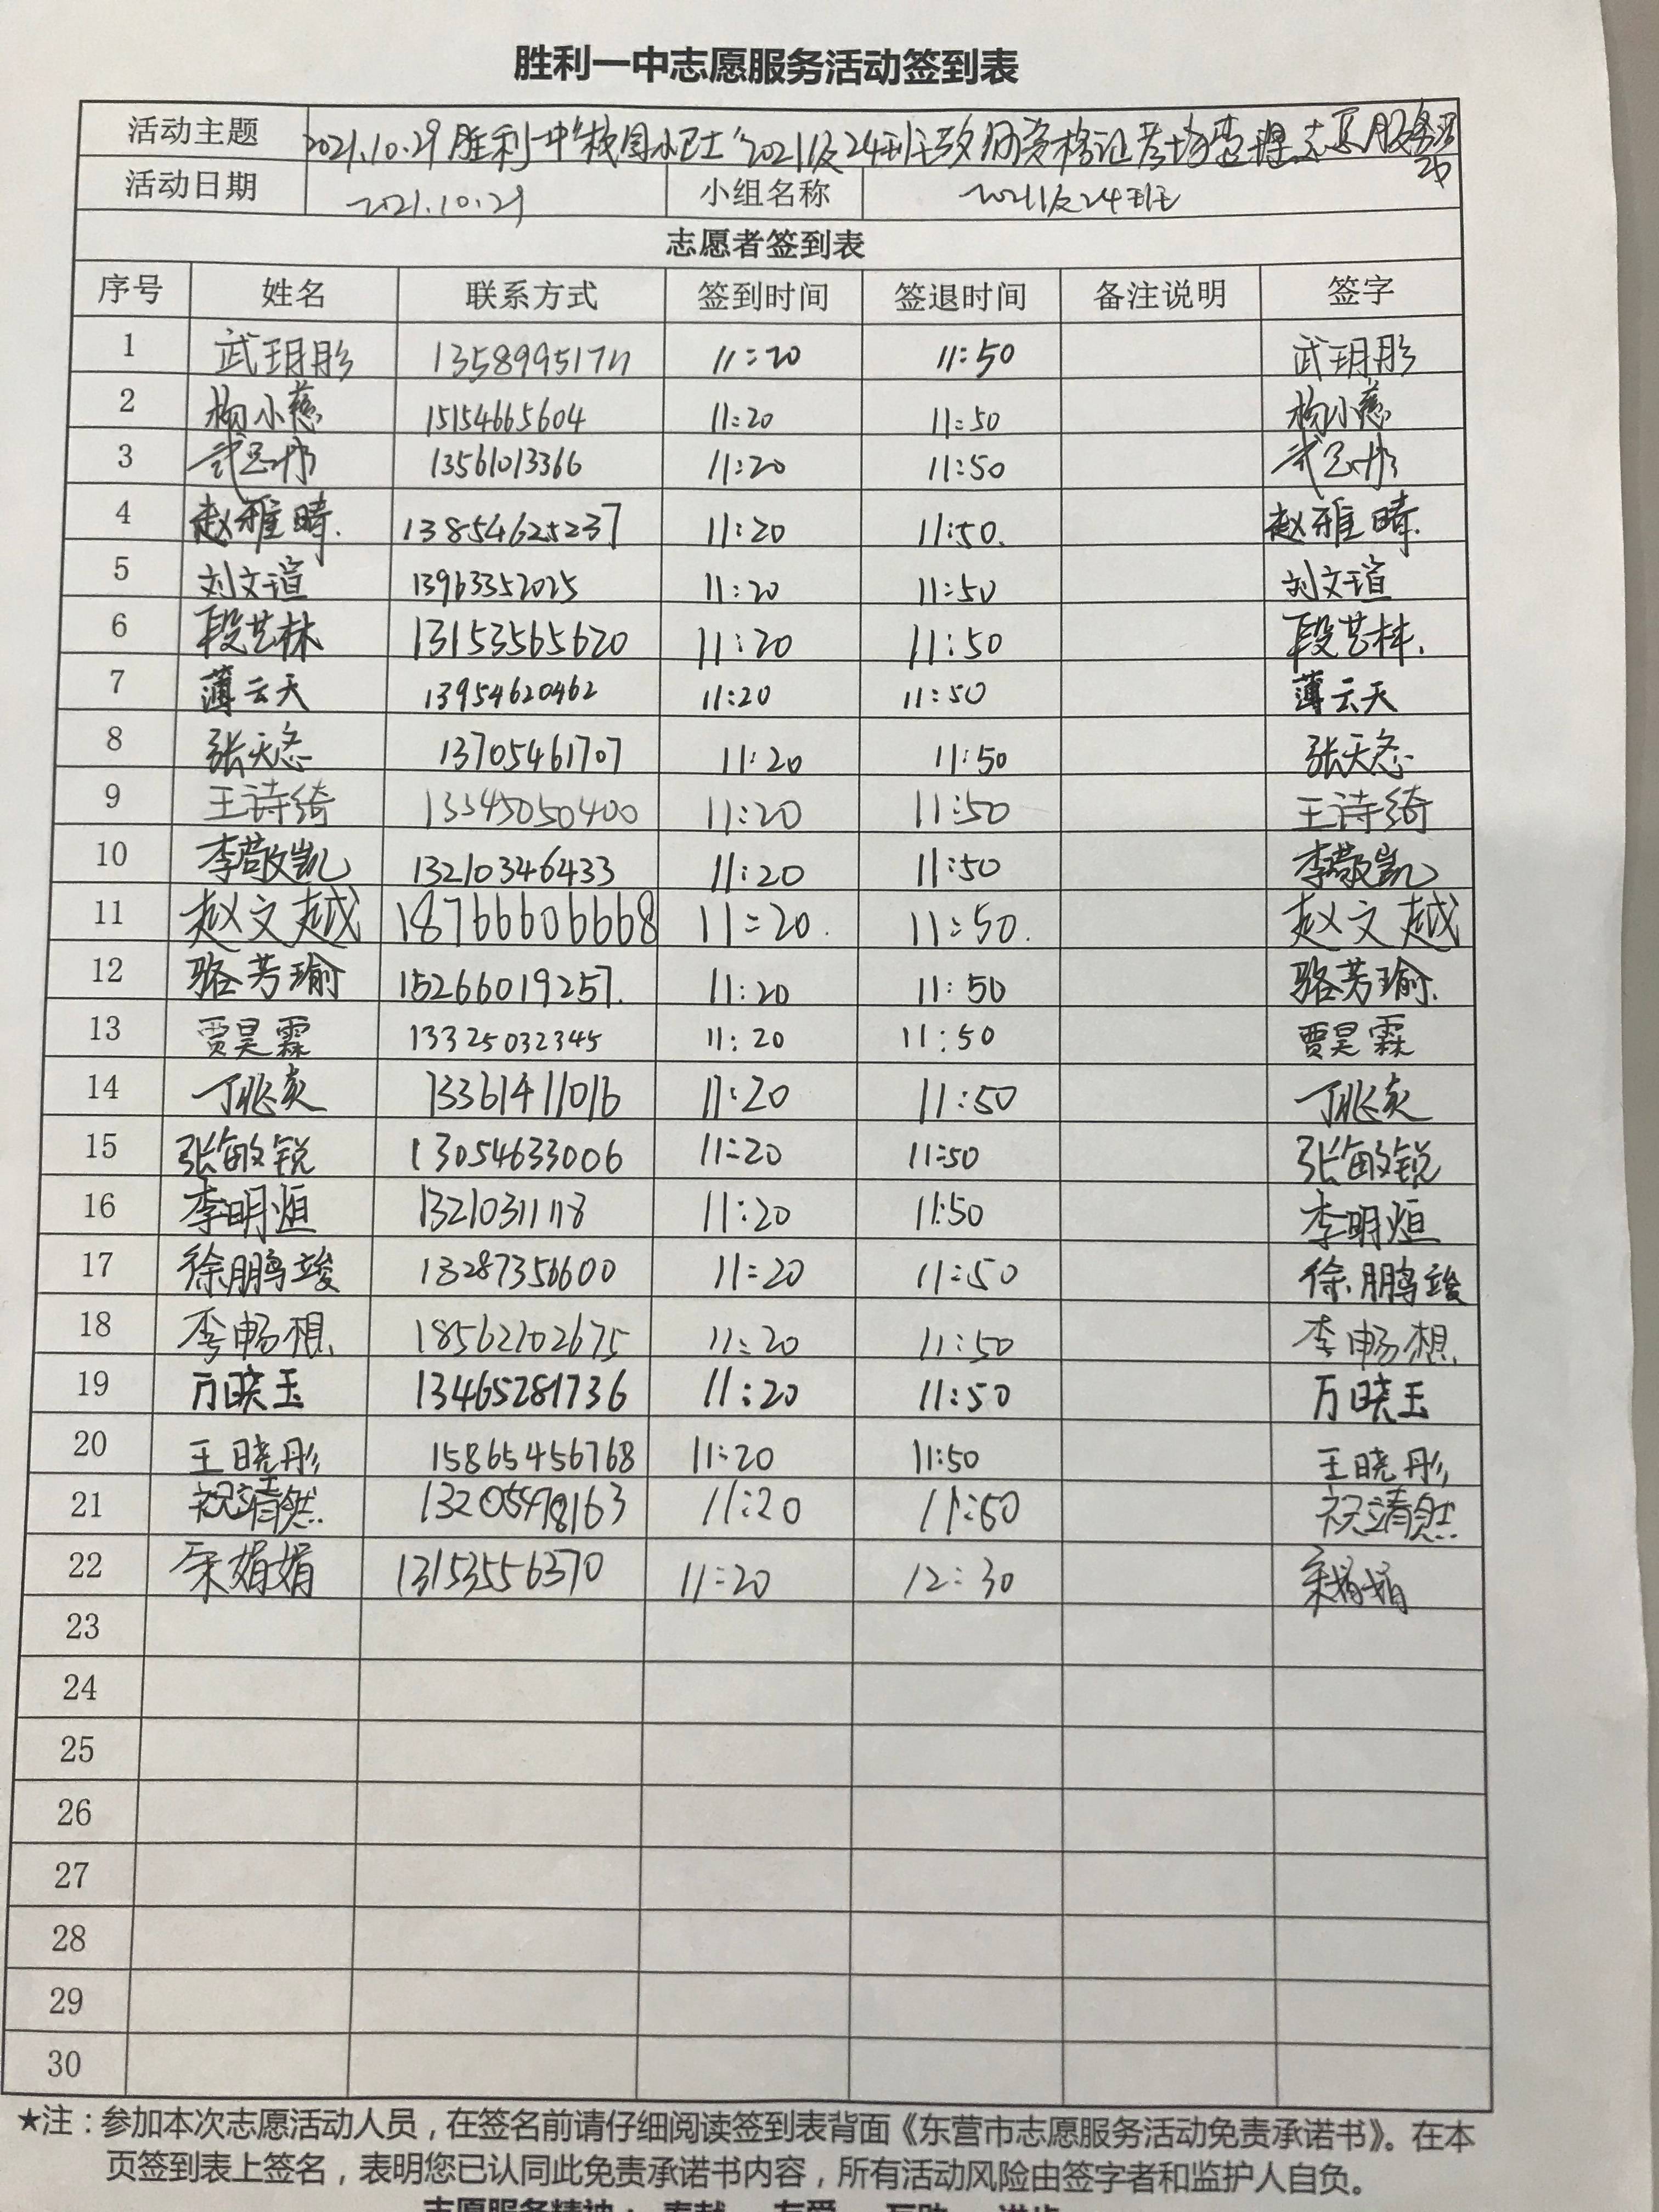 胜利一中志愿服务活动签到表
活动主题 2021.10.29胜利一中"校园小卫士"2021级24班教师资格证考场整理志愿服务活动
活动日期 2021.10.29 小组名称 2021级24班
志愿者签到表
序号 姓名 联系方式 签到时间 签退时间 备注说明 签字
1 武玥彤 11:20 11:50 武玥彤
2 杨小慈 15154665604 11:20 11:50 杨小慈
3 13561013366 11:20 11:50
4 赵雅晴. 13854625237 11:20 11:50. 赵雅晴.
5 刘文瑄 13963352025 11:20 11:50 刘文瑄
6 段艺林 13153565620 11:20 11:50 段艺林.
7 薄云天 13954620462 11:20 11:50 薄云天
8 张天悠 13705461707 11:20 11:50 张天悠
9 王诗绮 13345050400 11:20 11:50 王诗绮
10 李敬凯 13210346433 11:20 11:50 李敬凯
11 赵文越 18766606668 11:20. 11:50. 赵文越
12 骆芳瑜 15266019257. 11:20 11:50 骆芳瑜.
13 贾昊霖 13325032345 11:20 11:50 贾昊霖
14 丁兆奕 13361411016 11:20 11:50 丁兆奕
15 张敏锐 13054633006 11:20 11:50 张敏锐
16 李明烜 13210311118 11:20 11:50 李明烜
17 徐鹏竣 13287356600 11:20 11:50 徐鹏竣
18 李畅想. 18562102675 11:20 11:50 李畅想.
19 万晓玉 13465281736 11:20 11:50 万晓玉
20 王晓彤 15865456768 11:20 11:50 王晓彤
21 祝清然 11:20 11:50 祝清然
22 宋娟娟 13153556370 11:20 12:30 宋娟娟
23
24
25
26
27
28
29
30
★注：参加本次志愿活动人员，在签名前请仔细阅读签到表背面《东营市志愿服务活动免责承诺书》。在本
页签到表上签名，表明您已认同此免责承诺书内容，所有活动风险由签字者和监护人自负。
志愿服务精神：奉献 友爱 互助 进步